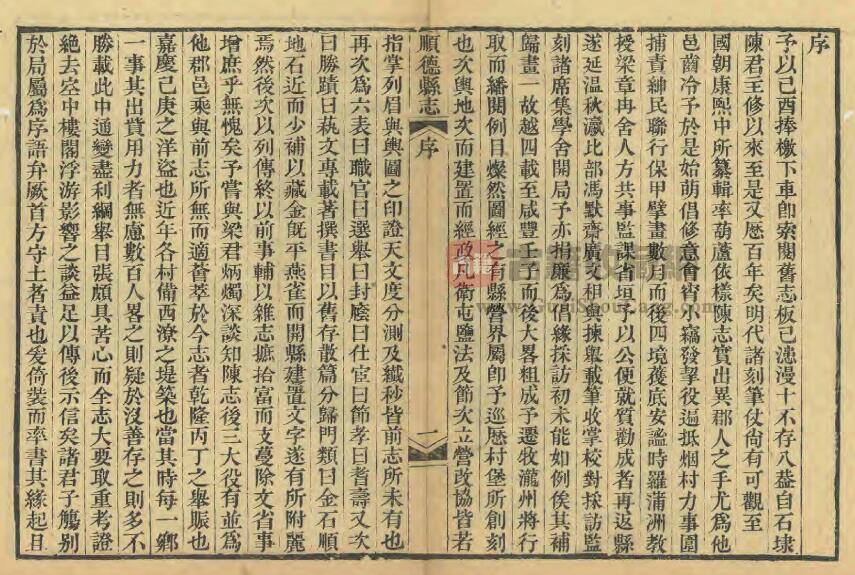 序
予以己酉捧檄下車卽索閱舊志板已漶漫十不存八盖自石埭
陳君王修以來至是又歷百年矣明代諸刻筆仗尙有可觀至
國朝康熙中所纂輯率葫蘆依樣陳志實出異郡人之手尤爲他
邑齒冷予於是始萌倡修意會宵小竊發挐役遍抵烟村力事圍
捕責紳民聯行保甲擘畫數月而後四境蒦底安謐時羅蒲洲教
授梁章冉舍人方共事監課省垣予以公便就質勸成者再返縣
遂延温秋瀛比部馮默齋廣文相與揀舉載筆收掌校對採訪監
刻諸席集學舍開局予亦捐廉爲倡緣採訪初未能如例俟其補
歸畫一故越四載至咸豐壬子而後大畧粗成予遷牧瀧州將行
取而繙閱例目燦然圖經之有縣營界屬卽予巡歷村堡所創刻
也次輿地次而建置而經政凡衛屯鹽法及節次立營改協皆若
順德縣志
序
一
指掌列眉與輿圖之印證天文度分測及纖秒皆前志所未有也
再次爲六表曰職官曰選舉曰封廕曰仕宦曰節孝曰耆壽又次
曰勝蹟曰蓺文專載著撰書目以舊存散篇分歸門類曰金石順
地石近而少補以藏金旣平燕雀而開縣建置文字遂有所附麗
焉然後次以列傳終以前事輔以雜志摭拾富而支蔓除文省事
增庶乎無愧矣予嘗與梁君炳燭深談知陳志後三大役有並爲
他郡邑乘與前志所無而適薈萃於今志者乾隆丙丁之舉賑也
嘉慶己庚之洋盜也近年各村備西潦之堤築也當其時每一鄉
一事其出貲用力者無慮數百人畧之則疑於沒善存之則多不
勝載此中通變盡利綱舉目張頗具苦心而全志大要取重考證
絶去空中樓閣浮游影響之談益足以傳後示信矣諸君子觴別
於局屬爲序語弁厥首方守土者責也爰倚裝而率書其緣起且